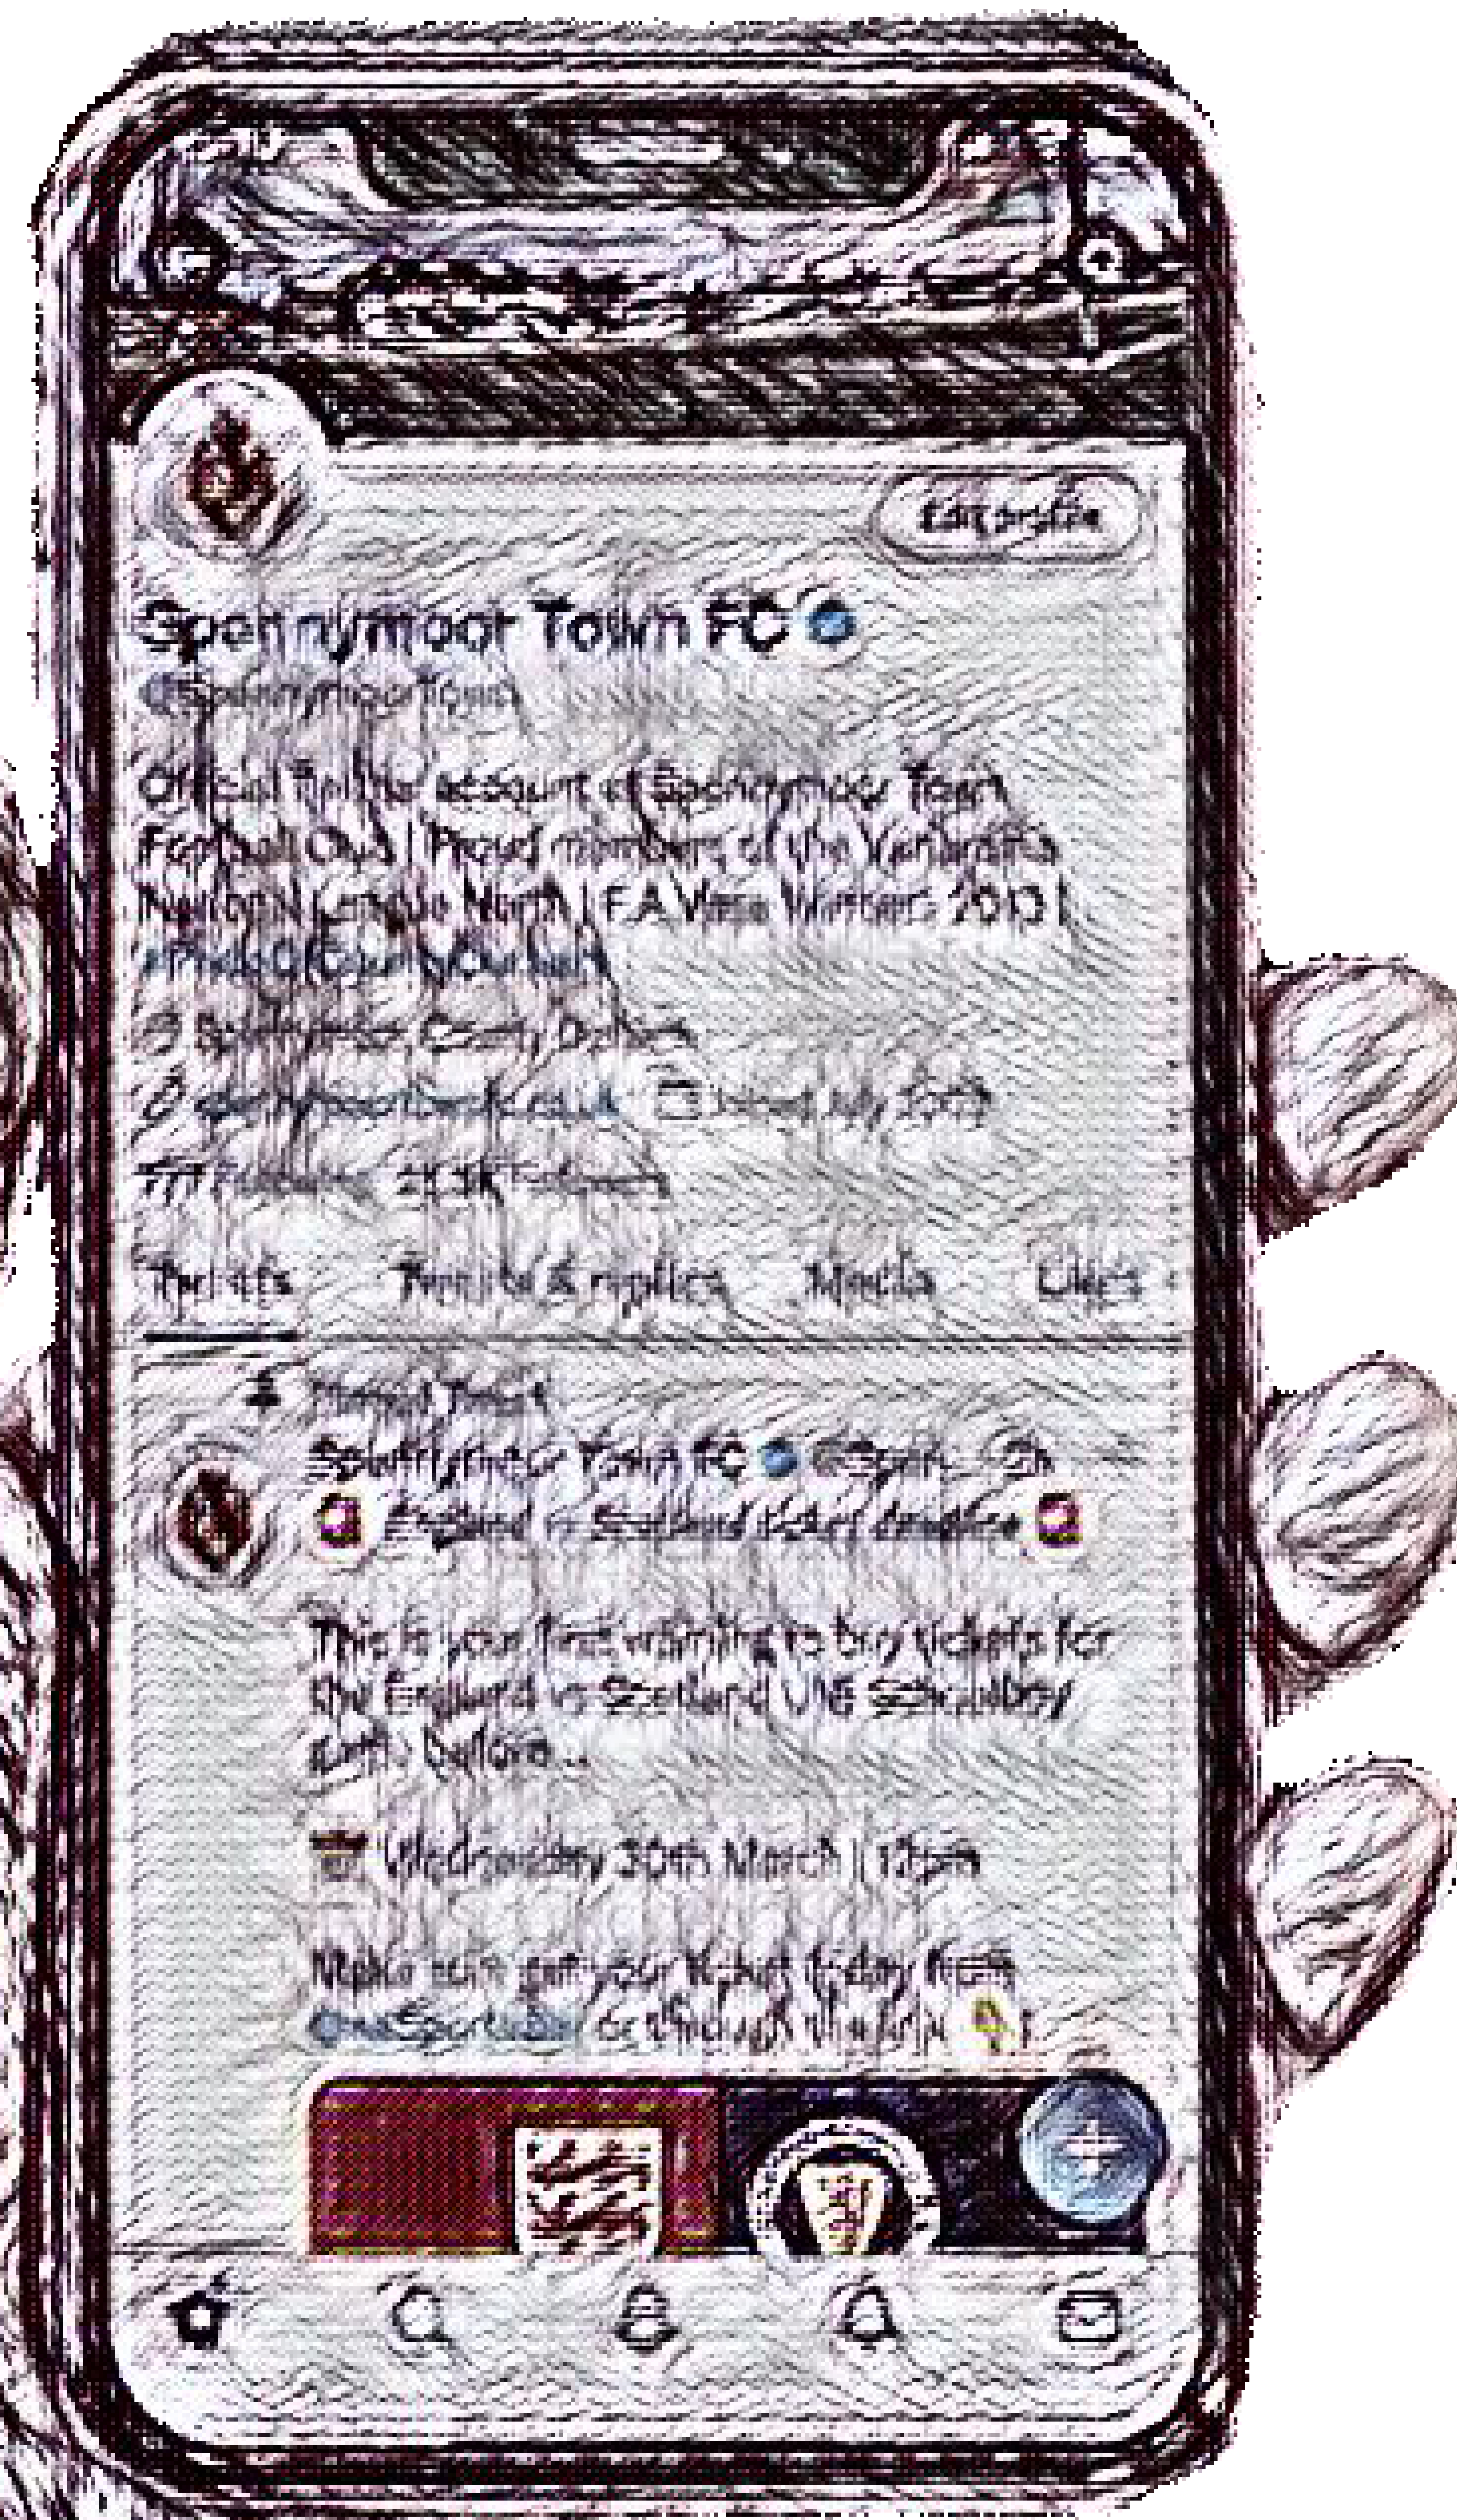 Edit profile
Spennymoor Town FC
@SpennymoorTown
Official Twitter account of Spennymoor Town
Football Club | Proud members of the Vanarama
National League North | F.A Vase Winners 2013 |
#PrideOfCountyDurham
Spennymoor, County Durham
Joined July 2009
777 Following Followers
Tweets Tweets & replies Media Likes
Pinned Tweet
Spennymoor Town FC @Spen... 2h
England vs Scotland ticket deadline
This is your first warning to buy tickets for
the England vs Scotland U18 Schoolboy
before...
Wednesday 30th March | 12pm
Make sure get your ticket today from
or through the link